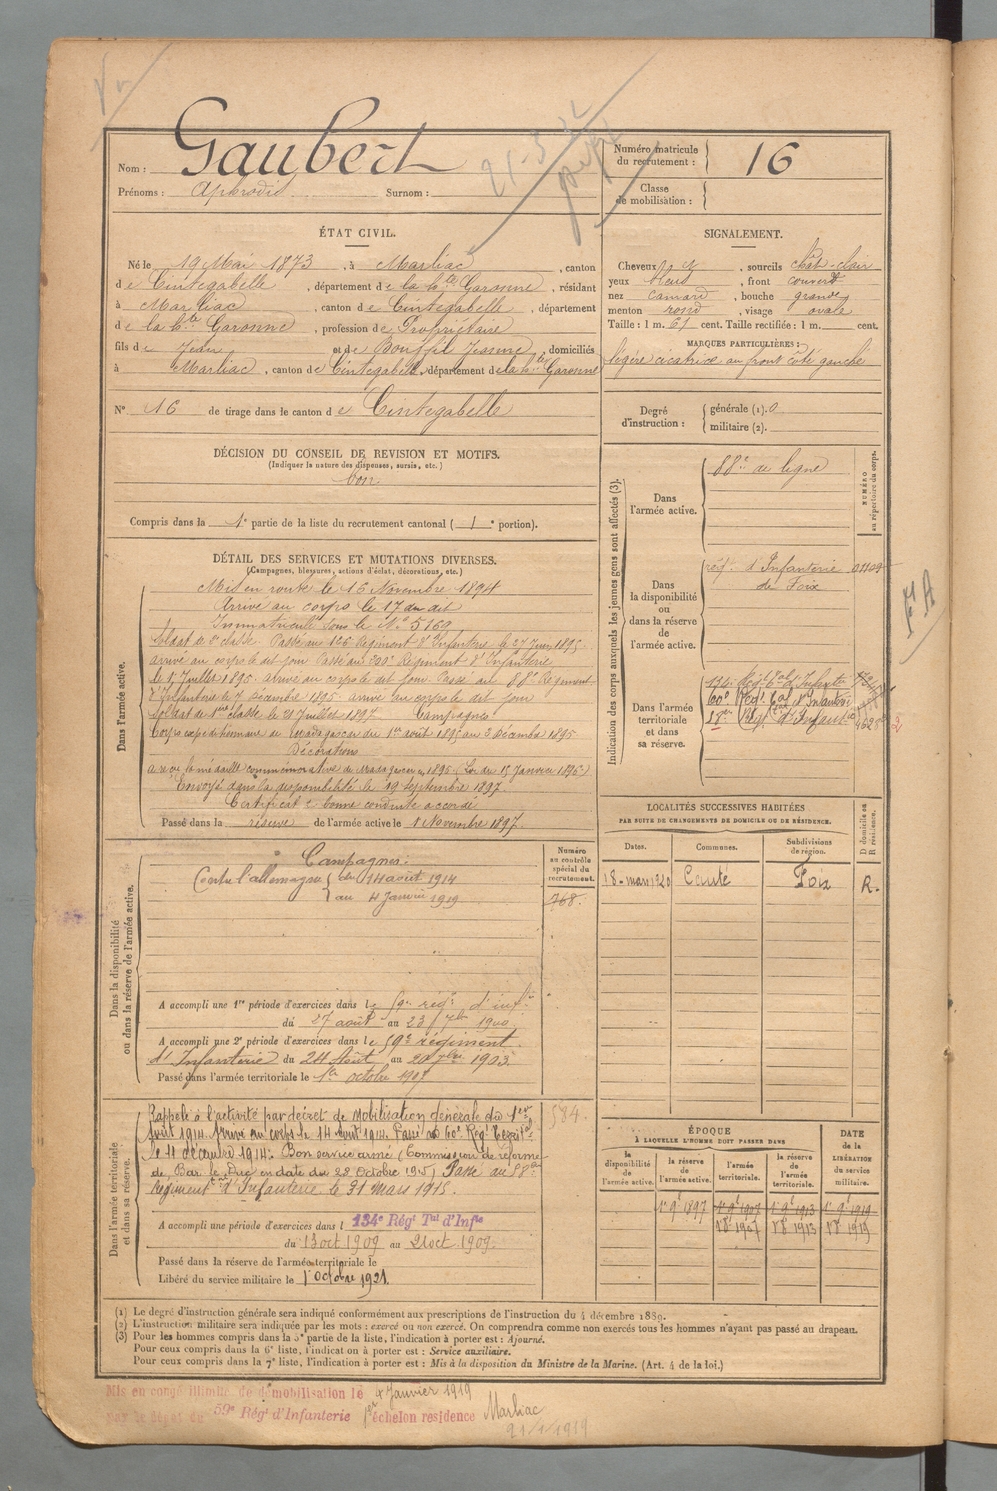 Gaubert
Nom :
Prénoms : Aphrodis Surnom :
21-3-
Numéro matricule du recrutement : 16
Classe de mobilisation :
ÉTAT CIVIL.
Né le 19 Mai 1873, à Marliac, canton
de Cintegabelle, département de la Hte Garonne, résidant
à Marliac, canton de Cintegabelle, département
de la Hte Garonne, profession de Propriétaire
fils de Jean et de Bouffil Jeanne, domiciliés
à Marliac, canton de Cintegabelle, département de la Hte Garonne
N° 16 de tirage dans le canton de Cintegabelle
SIGNALEMENT.
Cheveux, sourcils chât-clair
yeux bleus, front couvert
nez camard, bouche grande
menton rond, visage ovale
Taille : 1 m. 61 cent. Taille rectifiée : 1 m. cent.
MARQUES PARTICULIÈRES :
légère cicatrice au front côté gauche
Degré d'instruction :
générale (1). 0
militaire (2).
DÉCISION DU CONSEIL DE REVISION ET MOTIFS.
(Indiquer la nature des dispenses, sursis, etc.)
bon
Compris dans la 1e partie de la liste du recrutement cantonal ( 1e portion).
DÉTAIL DES SERVICES ET MUTATIONS DIVERSES.
(Campagnes, blessures, actions d'éclat, décorations, etc.)
Dans l'armée active.
Mis en route le 16 Novembre 1894
Arrivé au corps le 17 du dit
Immatriculé sous le N° 5169
Soldat de 2e classe. Passé au 126 Régiment d'Infanterie le 27 Juin 1895
arrivé au corps le dit jour Passé au 200e Régiment d'Infanterie
le 1er Juillet 1895. arrivé au corps le dit jour Passé au 88e Régiment
d'Infanterie le 7 décembre 1895. arrivé au corps le dit jour
Soldat de 1ère classe le 21 Juillet 1897. Campagnes
Corps expéditionnaire de Madagascar du 1er août 1895 au 3 Décembre 1895
Décorations
a reçu la médaille commémorative de Madagascar 1895 (Loi du 15 Janvier 1896)
Envoyé dans la disponibilité le 19 septembre 1897.
Certificat de bonne conduite accordé
Passé dans la réserve de l'armée active le 1 Novembre 1897.
Indication des corps auxquels les jeunes gens sont affectés (3).
NUMÉRO au répertoire du corps.
Dans l'armée active.
88e de ligne
Dans la disponibilité ou dans la réserve de l'armée active.
régt d'Infanterie de Foix
Dans l'armée territoriale et dans sa réserve.
134e Régt Tal d'Infanterie
60e Régt Tal d'Infanterie
Régt d'Infanterie
FA
LOCALITÉS SUCCESSIVES HABITÉES
PAR SUITE DE CHANGEMENTS DE DOMICILE OU DE RÉSIDENCE.
Dates. Communes. Subdivisions de région. D domicile ou R résidence.
18-mars 1920 Canté Foix R.
Dans la disponibilité ou dans la réserve de l'armée active.
Campagnes :
Contre l'allemagne du 14 août 1914
au 4 Janvier 1919
Numéro au contrôle spécial du recrutement.
768.
A accompli une 1re période d'exercices dans le 59e régt d'inf.
du 27 août au 23 7bre 1900
A accompli une 2e période d'exercices dans le 59e régiment
d'Infanterie du 24 Août au 20 7bre 1903.
Passé dans l'armée territoriale le 1er octobre 1907
Dans l'armée territoriale et dans sa réserve.
Rappelé à l'activité par décret de Mobilisation générale du 1er
Août 1914. Arrivé au corps le 14 Août 1914. Passé au 60e Régt Territal
le 11 décembre 1914. Bon service armé (Commission de réforme
de Bar le Duc en date du 28 Octobre 1915) Passé au 88e
Régiment d'Infanterie le 31 Mars 1915.
584.
A accompli une période d'exercices dans l 134e Régt Tal d'Infie
du 13 oct 1909 au 21 oct 1909.
Passé dans la réserve de l'armée territoriale le
Libéré du service militaire le 1er Octobre 1921.
ÉPOQUE
A LAQUELLE L'HOMME DOIT PASSER DANS
la disponibilité de l'armée active. la réserve de l'armée active. l'armée territoriale. la réserve de l'armée territoriale.
DATE de la LIBÉRATION du service militaire.
1er 9e 1897 1er 9e 1907 1er 9e 1913 1er 9e 1919
1er 8e 1907 1er 8e 1913 1er 8e 1919
(1) Le degré d'instruction générale sera indiqué conformément aux prescriptions de l'instruction du 4 décembre 1889.
(2) L'instruction militaire sera indiquée par les mots : exercé ou non exercé. On comprendra comme non exercés tous les hommes n'ayant pas passé au drapeau.
(3) Pour les hommes compris dans la 5e partie de la liste, l'indication à porter est : Ajourné.
Pour ceux compris dans la 6e liste, l'indication à porter est : Service auxiliaire.
Pour ceux compris dans la 7e liste, l'indication à porter est : Mis à la disposition du Ministre de la Marine. (Art. 4 de la loi.)
Mis en congé illimité de démobilisation le 4 Janvier 1919
par le dépôt du 59e Régt d'Infanterie 1er échelon residence Marliac
21/1/1919